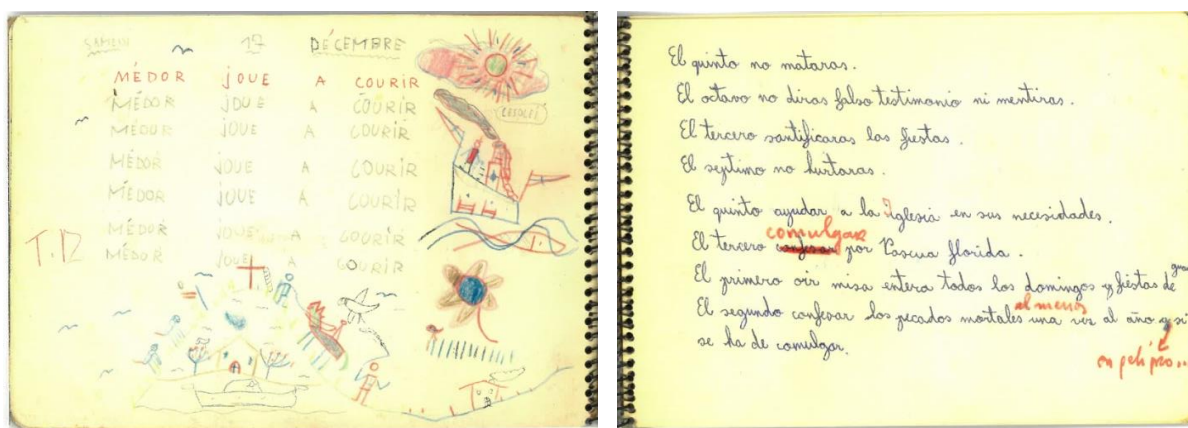 SAMEDI 17 DÉCEMBRE
MÉDOR JOUE A COURIR
MÉDOR JOUE A COURIR
MÉDOR JOUE A COURIR
MÉDOR JOUE A COURIR
MÉDOR JOUE A COURIR
MÉDOR JOUE A COURIR
MÉDOR JOUE A COURIR
El quinto no mataras.
El octavo no diras falso testimonio ni mentiras.
El tercero santificaras las fiestas.
El septimo no hurtaras.
El quinto ayudar a la Iglesia en sus necesidades.
comulgar
El tercero confesar por Pascua florida.
El primero oir misa entera todos los domingos y fiestas de
al menos
El segundo confesar los pecados mortales una vez al año y si
se ha de comulgar.
en peligro...